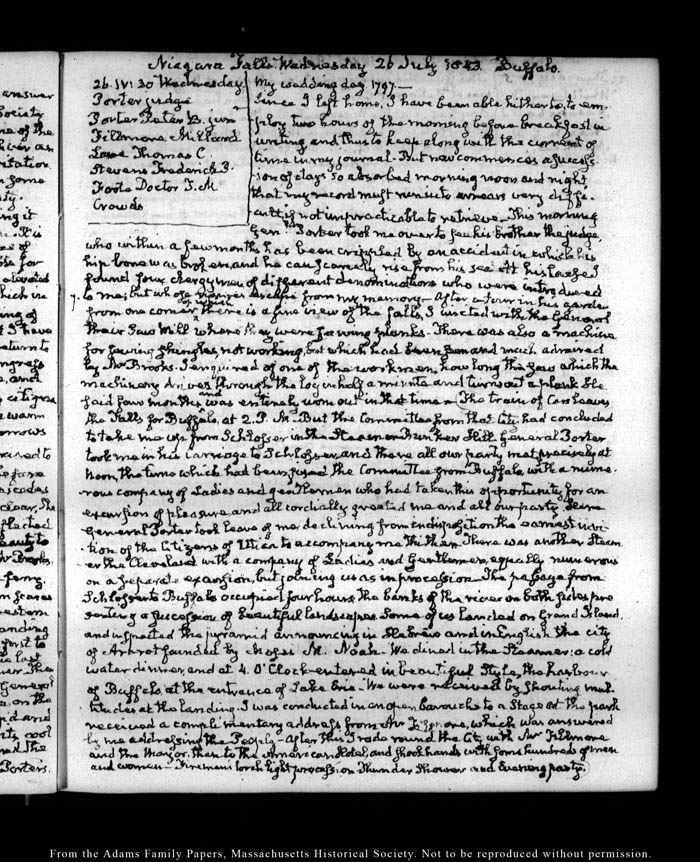 Niagara Falls Wednesday 26 July 1843. Buffalo.
26. IV: 30 Wednesday
Porter judge
Porter Peter B. jun
Fillmore Millard
Love Thomas C.
Stevens Frederick
Foote Doctor T. M
Crowds
My wedding day 1797.—
Since I left home, I have been able hitherto, to em-
ploy two hours of the morning before breakfast in
writing and thus to keep along with the current of
time in my journal. But now commences a success-
ion of days so absorbed morning noon and night,
that my record must run into arrears very diffi-
cult if not impracticable to retrieve. This morning
Genl. Porter took me over to see his brother the judge
who within a few months has been crippled by an accident in which his
hip bone was broken, and he can scarcely rise from his seat. At his house I
found four clergymen of different denominations who were introduced
to me; but whose names escape from my memory— After a tour in his garden
from one corner of which there is a fine view of the falls, I visited with the General
their Saw Mill where they were sawing planks. There was also a machine
for sawing shingles, not working, but which had been seen and much admired
by Mr Brooks. I enquired of one of the workmen, how long the saw which the
machinery drives through the log in half a minute and turns out a plank. He
said four months and was entirely worn out in that time— The train of Cars leaves
the Falls for Buffalo, at 2. P. M. But the Committee from that City had concluded
to take me up from Schlosser in the Steamer Bunker Hill. General Porter
took me in his carriage to Schlosser, and there all our party met precisely at
Noon, the time which had been fixed the Committee from Buffalo, with a nume-
rous company of Ladies and gentlemen who had taken this opportunity for an
excursion of pleasure and all cordially greeted me and all our party. Here
General Porter took leave of me; declining from indisposition the earnest invi-
tion of the Citizens of Utica to accompany me thither. There was another Steam-
er the Cleveland with a company of Ladies and Gentlemen, equally numerous
on a separate excursion, but joining us as in procession. The passage from
Schlosser to Buffalo occupied four hours, the banks of the river on both sides pre-
senting a succession of beautiful landscapes. Some of us landed on Grand Island
and inspected the pyramid announcing in Hebrew and in English the city
of Ararat founded by Mordecai M. Noah. We dined in the Steamer: a cold
water dinner, and at 4. O'Clock entered in beautiful style, the harbour
of Buffalo, at the entrance of Lake Erie. We were received by shouting mul-
titudes at the landing. I was conducted in an open barouche to a Stage at the park
received a complimentary address from Mr Fillmore, which was answered
by me addressing the People— After this I rode round the City with Mr Fillmore
and the Mayor, then to the American Hotel, and shook hands with some hundreds of men
and women— Firemen's torch light procession Thunder Shower and Evening party.
answer
Society
of the
some
ty.
ing it
It is
as of
for
which in
ing of
I have
return to
and
citizens
warm
ferry.
western
anding
last
General
on the
and
cool
and the
Porter's.
From the Adams Family Papers, Massachusetts Historical Society. Not to be reproduced without permission.